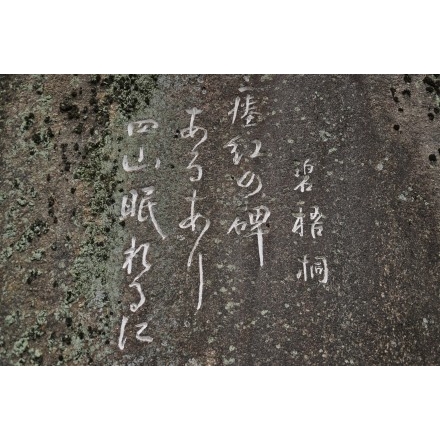 四山眠れるに
あるあり
紅の碑
碧梧桐